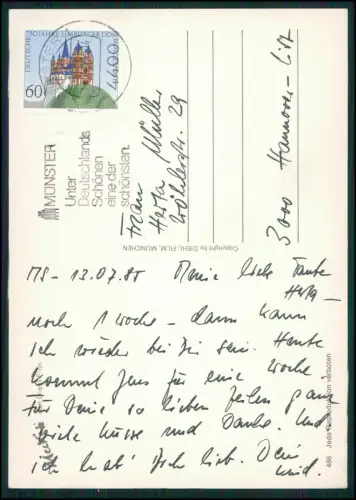 DEUTSCHE
750 JAHRE LIMBURGER DOM
60
MÜNSTER
Unter
Deutschlands
Schönen
eine der
schönsten.
Frau
Herta Müller
29
3000 Hannover-List
Copyright by DIEHL-FILM, MÜNCHEN
MS - 13.07.85 Meine liebe Tante
Herta -
noch 1 Woche - dann kann
ich wieder bei Dir sein. Heute
kommt Jens für eine Woche.
Für Deine so lieben Zeilen ganz
viele Küsse und Danke. Und
ich hab' Dich lieb Dein
Kind.
486 Jede Reproduktion verboten